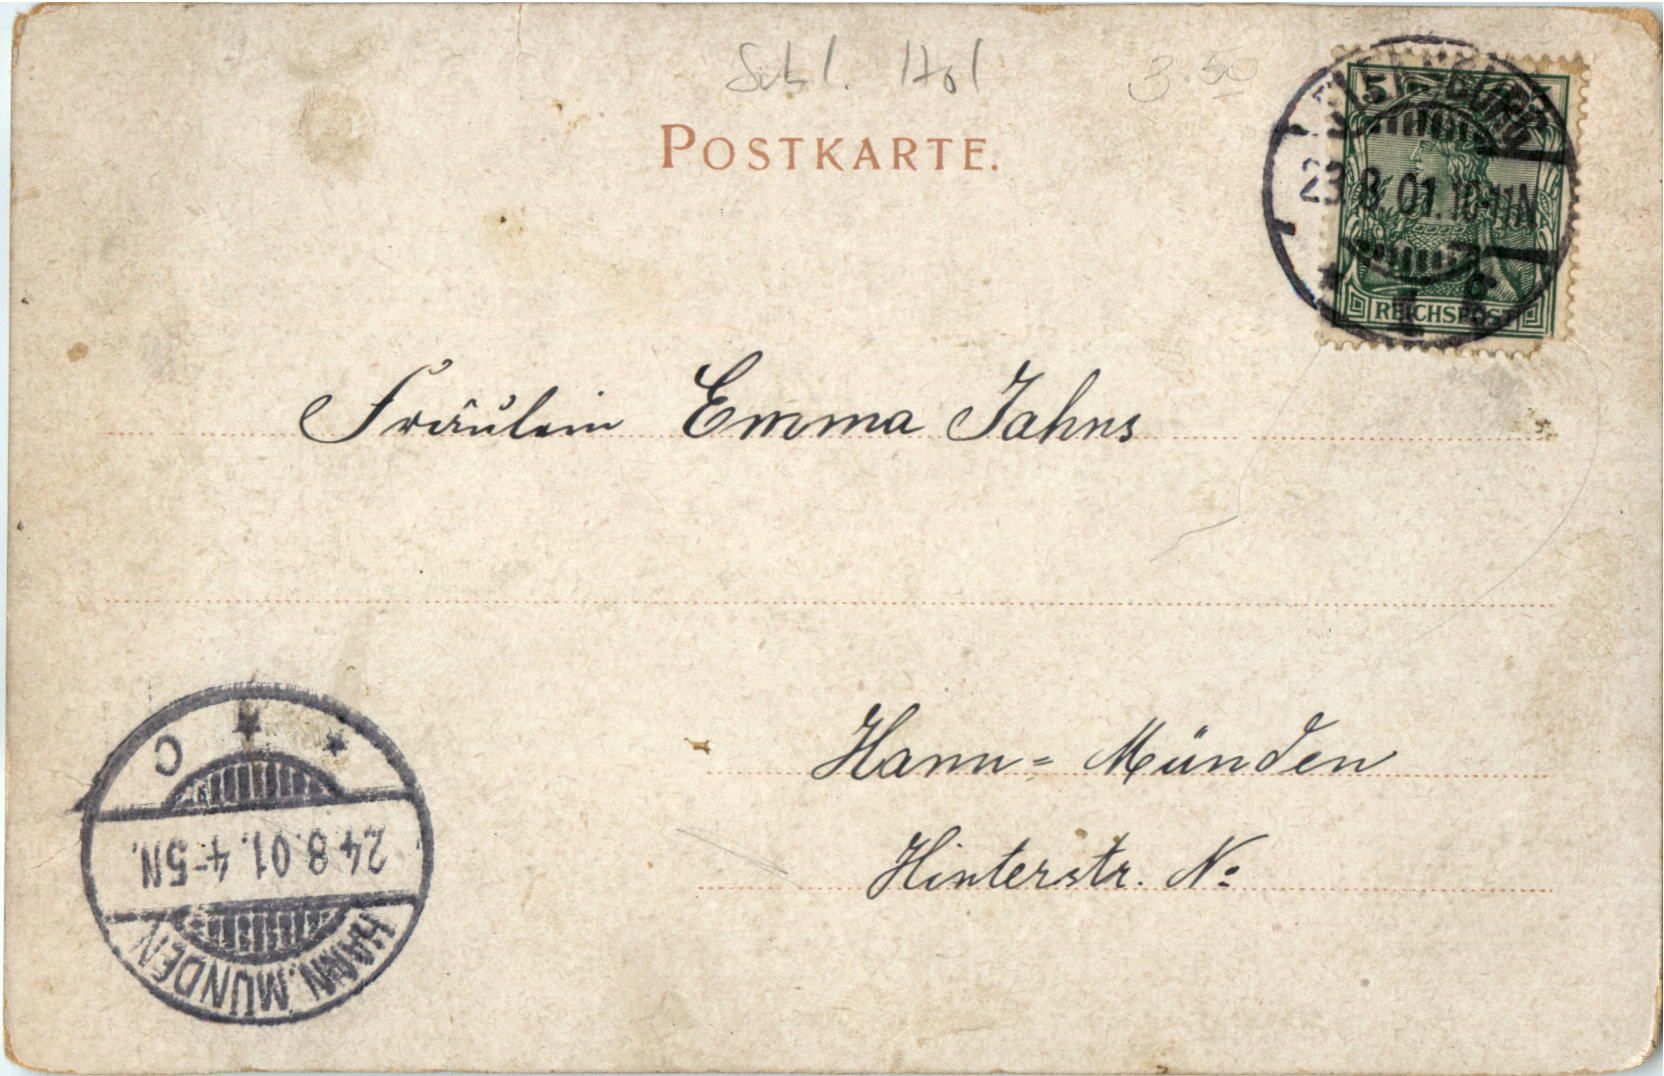 Schl. Hol
3.50
POSTKARTE.
5
FLENSBURG
23.8.01.10-11N
* 1 f
REICHSPOST
Fräulein Emma Jahns
Hann= Münden
Hinterstr. No
* * C
24.8.01.4-5N.
HANN. MÜNDEN